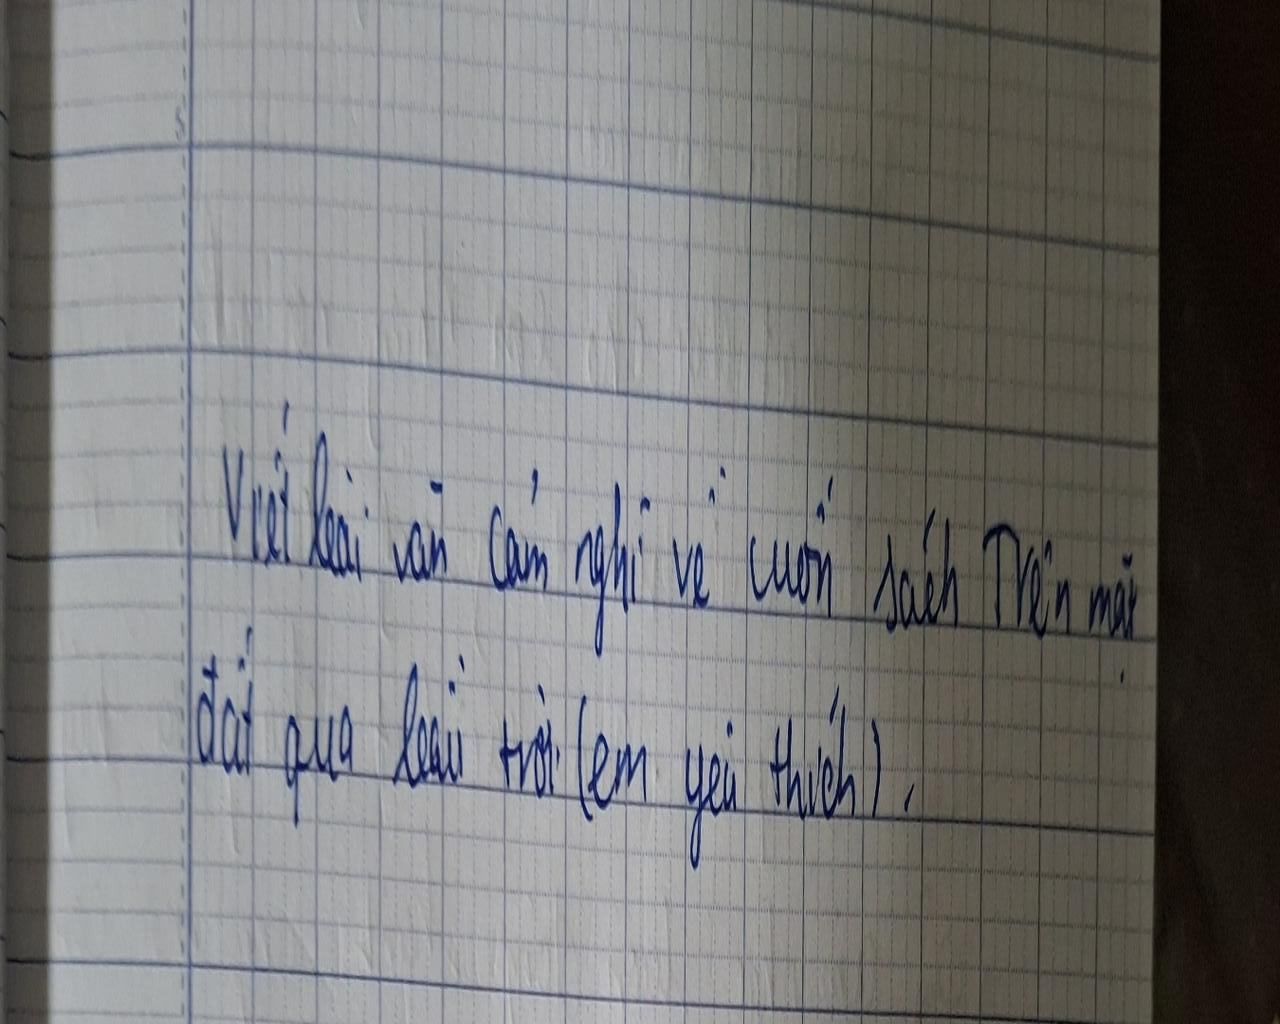 Viết bài văn cảm nghĩ về cuốn sách Trên mặt
đất qua bầu trời (em yêu thích).